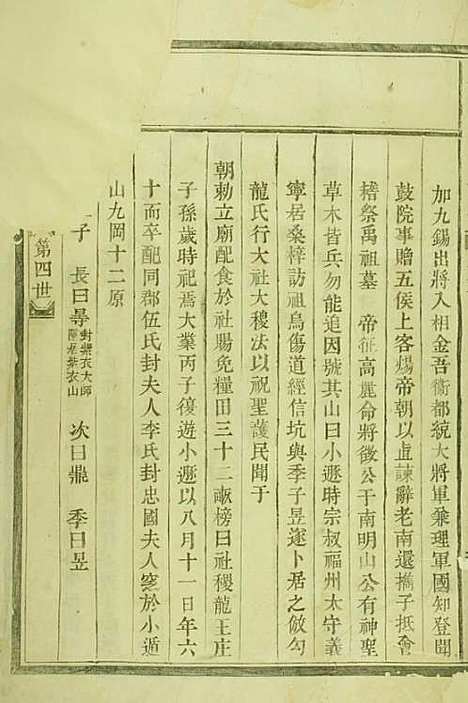 加九錫出將入相金吾衛都統大將軍兼理軍國知登聞
鼓院事贈五侯上客煬帝朝以直諫辭老南還攜子抵會
稽祭禹祖墓 帝征高麗命將徵公于南明山公有神聖
草木皆兵勿能追因號其山曰小遯時宗叔福州太守義
寧居桑梓訪祖烏傷道經信坑與季子昱遂卜居之倣勾
龍氏行大社大稷法以祝聖護民聞于
朝勅立廟配食於社賜免糧田三十二畝榜曰社稷龍王庄
子孫歲時祀焉大業丙子復遊小遯以八月十一日年六
十而卒配同郡伍氏封夫人李氏封忠國夫人窆於小遁
山九岡十二原
子 長曰 封紫衣大師 紫衣山 次曰鼎 季曰昱
第四世